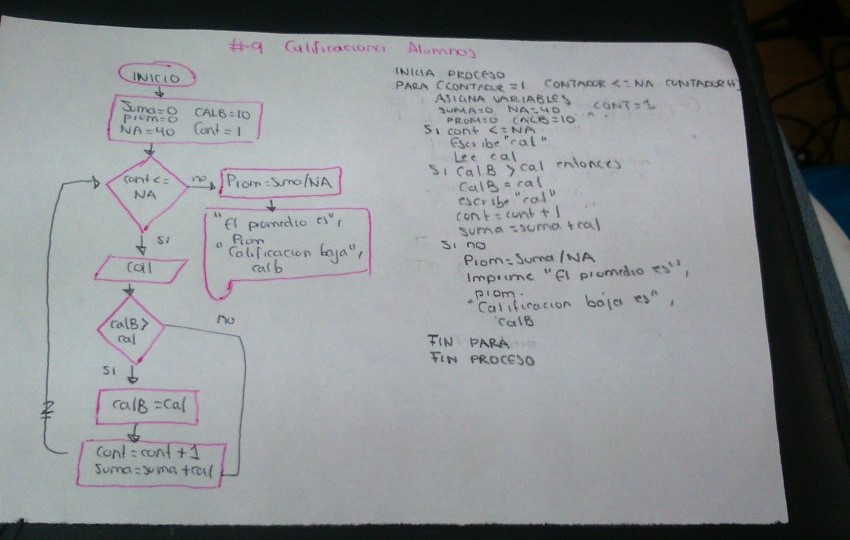 #-9 Calificaciones Alumnos
INICIO
Suma=0 CALB=10
Prom=0
NA=40 Cont=1
cont<=
NA
no
Prom=Suma/NA
"El promedio es",
Prom
"Calificacion baja",
calb
si
cal
calB>
cal
no
si
calB=Cal
cont=cont+1
suma=suma+cal
INICIA PROCESO
PARA (CONTADOR=1 CONTADOR<=NA CONTADOR++
ASIGNA VARIABLES
SUMA=0 NA=40 CONT=1
PROM=0 CALB=10
Si cont <=NA
Escribe "cal"
Lee cal
Si CalB > cal entonces
CalB = cal
escribe "cal"
cont = cont + 1
suma = suma + cal
Si no
Prom=Suma/NA
Imprime "El promedio es",
prom.
"Calificacion baja es",
CalB
FIN PARA
FIN PROCESO